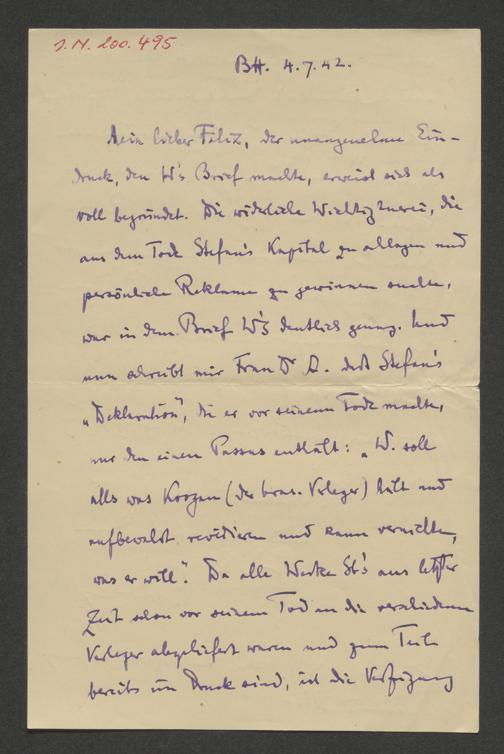 I.N. 200.495
BH. 4.7.42.
Mein lieber Felix, der unangenehme Ein-
druck, den W's Brief machte, erweist sich als
voll begründet. Die widerliche Wichtigtuerei, die
aus dem Tode Stefan's Kapital zu schlagen und
persönliche Reklame zu gewinnen suchte,
war in dem Brief W's deutlich genug. Und
nun schreibt mir Frau Dr A. dass Stefan's
„Deklaration", die er vor seinem Tode machte,
nur den einen Passus enthält: „W. soll
alles was Koogan (der bras. Verleger) hält und
aufbewahrt, revidieren und kann vernichten,
was er will". Da alle Werke St's aus letzter
Zeit schon vor seinem Tod an die verschiedenen
Verleger abgeliefert waren und zum Teil
bereits im Druck sind, ist die Verfügung